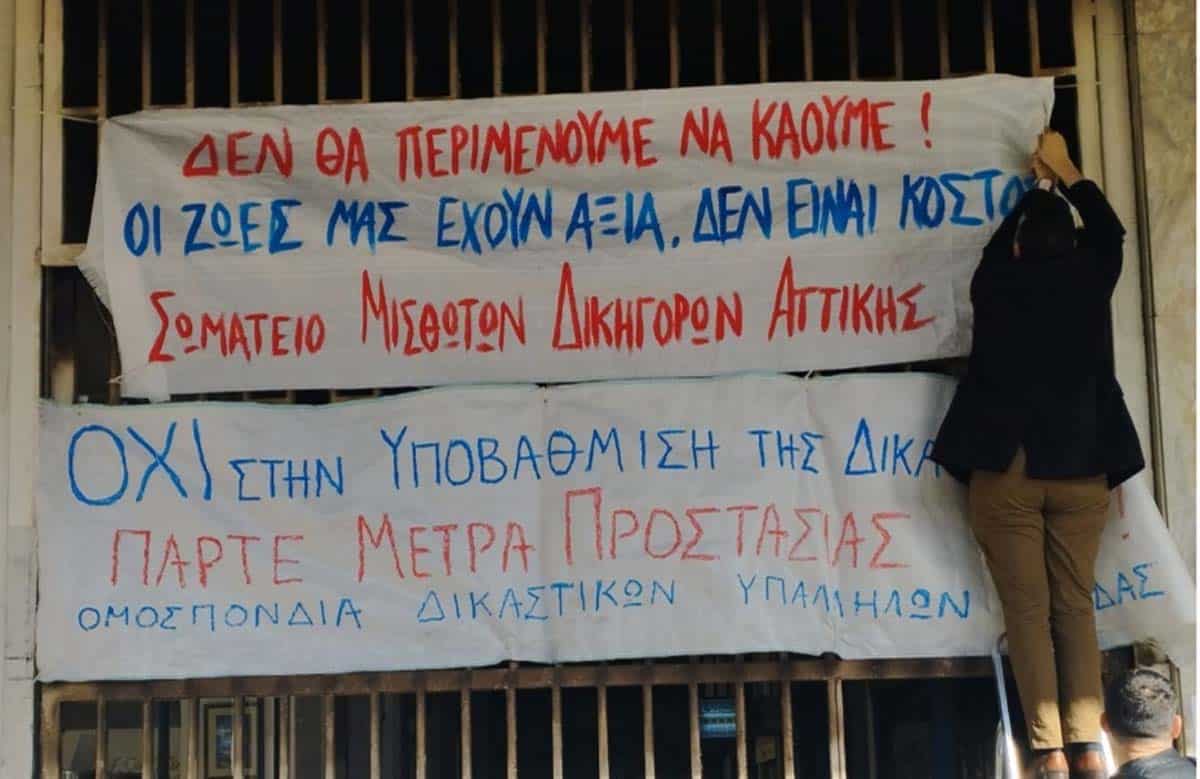 ΔΕΝ ΘΑ ΠΕΡΙΜΕΝΟΥΜΕ ΝΑ ΚΑΟΥΜΕ !
ΟΙ ΖΩΕΣ ΜΑΣ ΕΧΟΥΝ ΑΞΙΑ. ΔΕΝ ΕΙΝΑΙ ΚΟΣΤΟ
ΣΩΜΑΤΕΙΟ ΜΙΣΘΩΤΩΝ ΔΙΚΗΓΟΡΩΝ ΑΤΤΙΚΗΣ
ΟΧΙ ΣΤΗΝ ΥΠΟΒΑΘΜΙΣΗ ΤΗΣ ΔΙΚΑ
ΠΑΡΤΕ ΜΕΤΡΑ ΠΡΟΣΤΑΣΙΑΣ !
ΟΜΟΣΠΟΝΔΙΑ ΔΙΚΑΣΤΙΚΩΝ ΥΠΑΛΛΗΛΩΝ ΔΑΣ